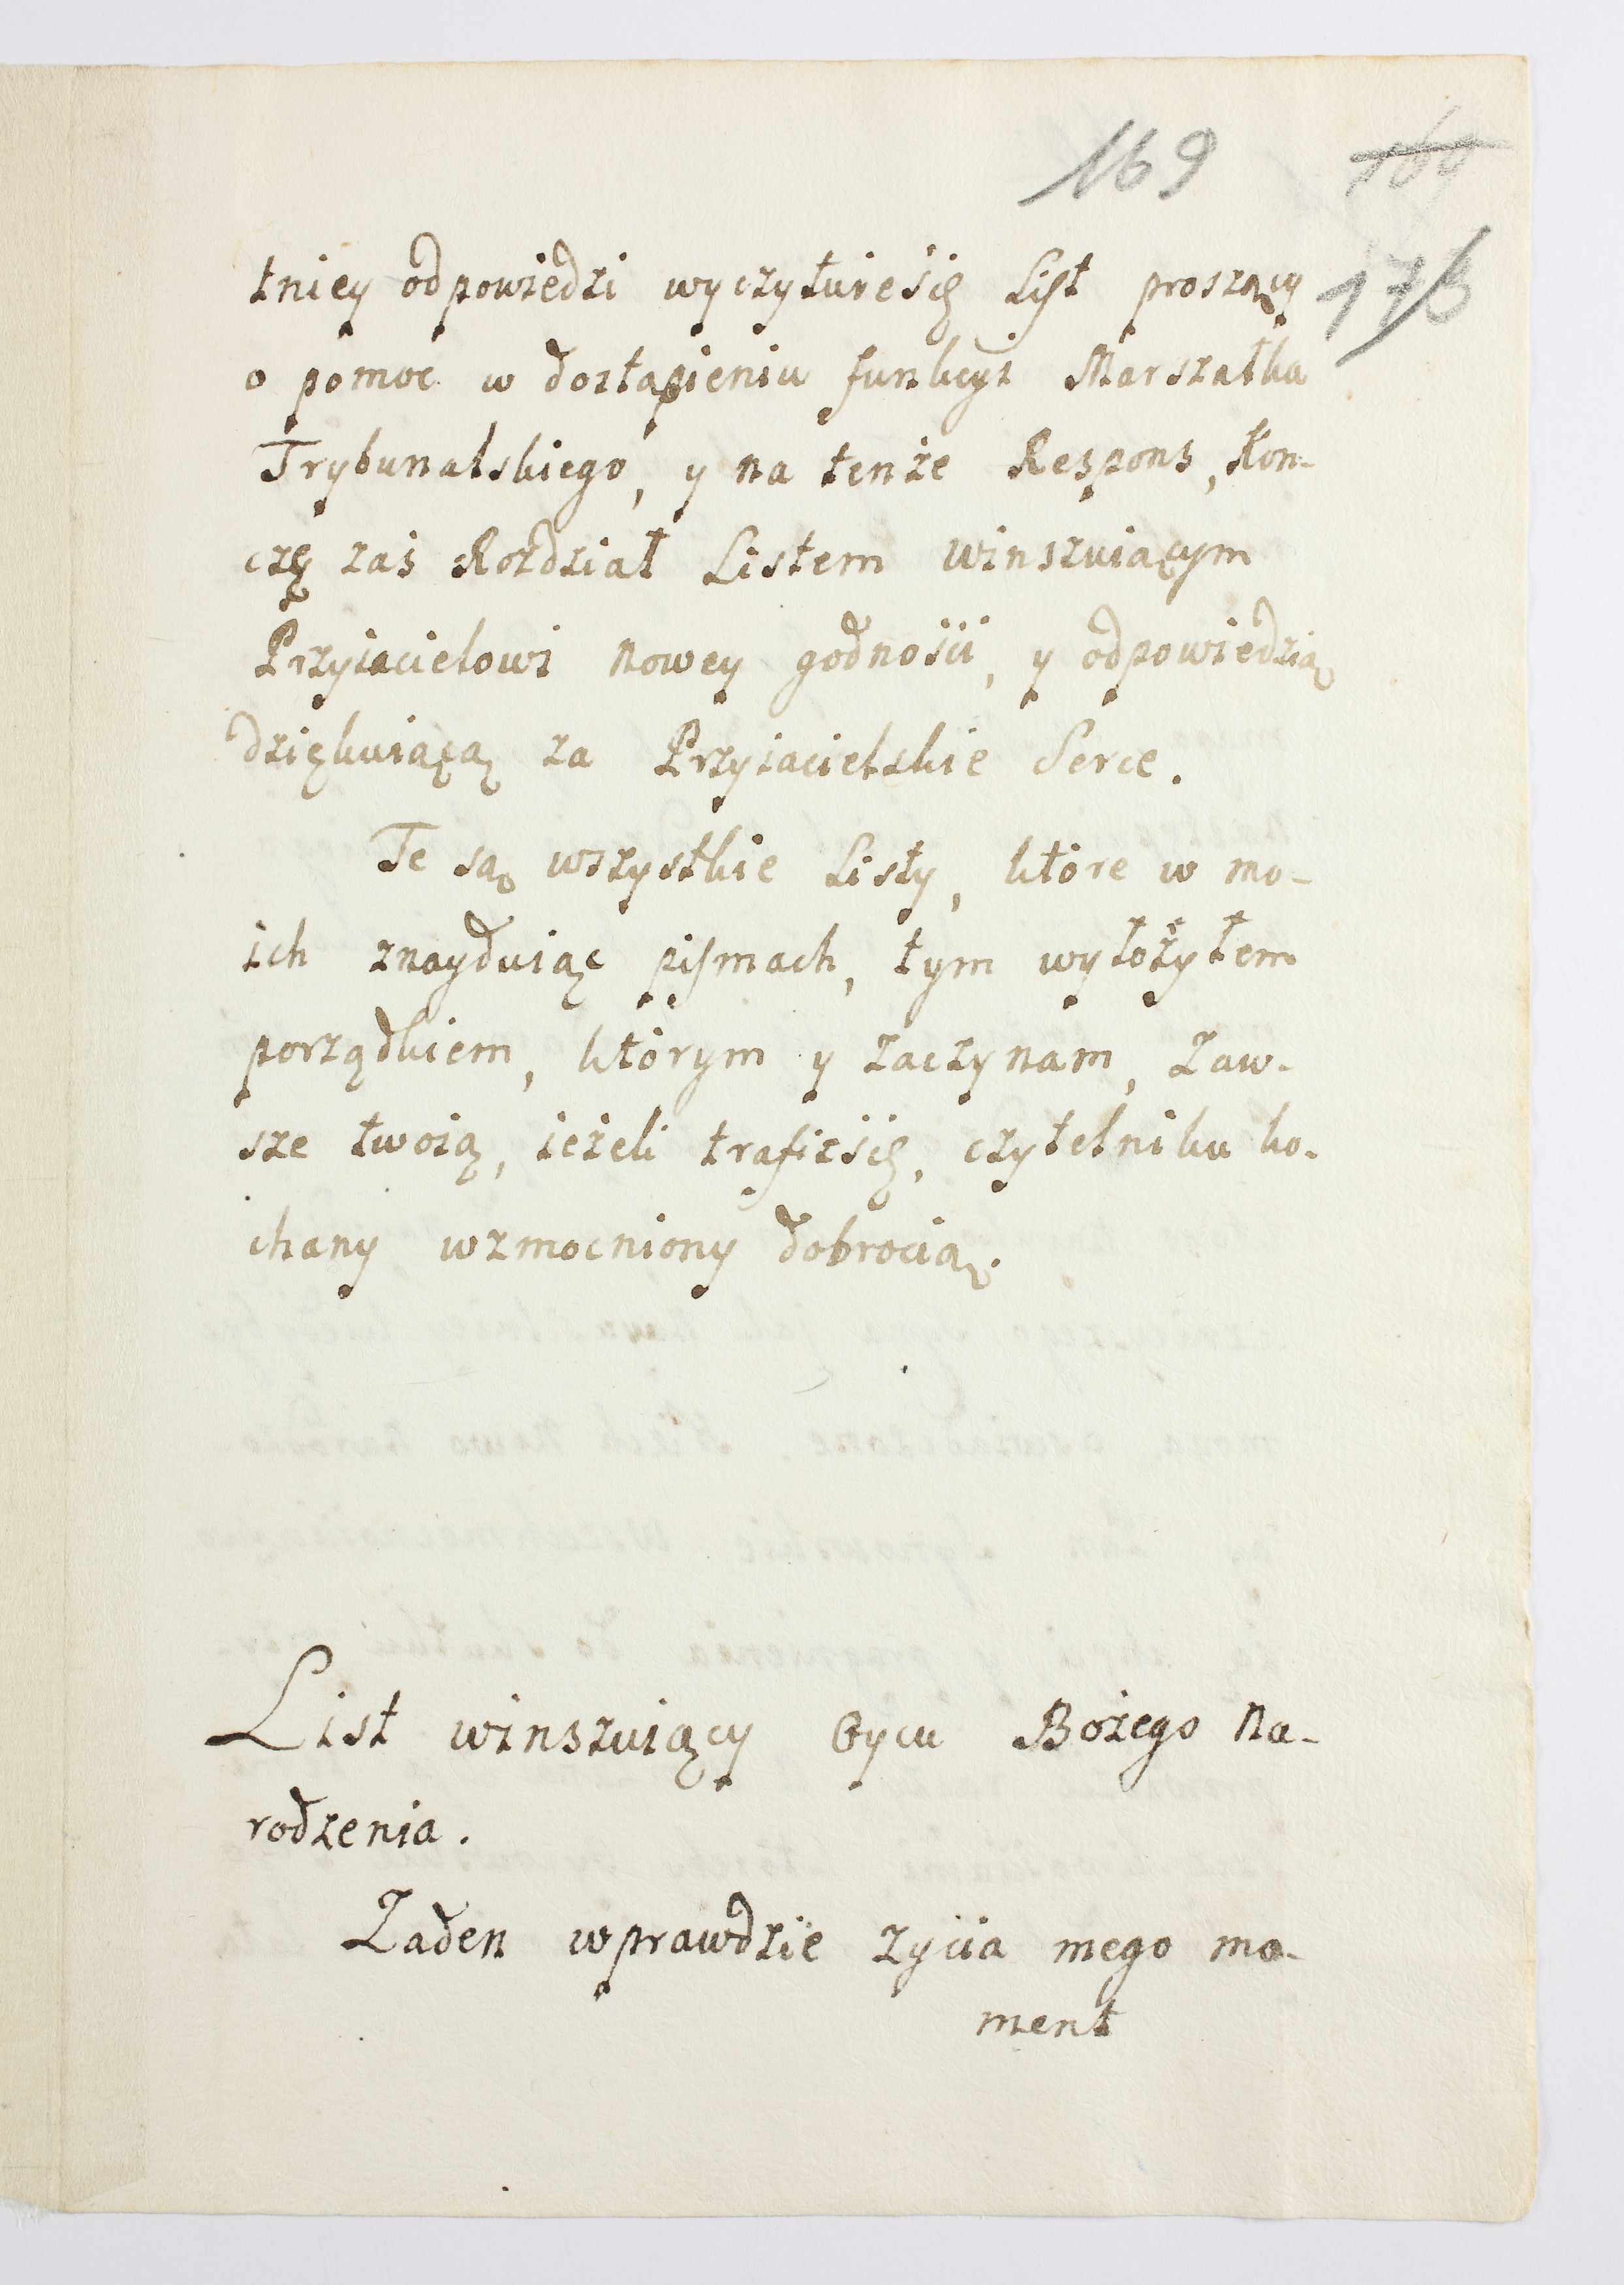 169 169
173
tniey odpowiedzi wyczytuieśię List proszący
o pomoc w dostąpieniu funkcyi Marszałka
Trybunalskiego, y na tenże Respons, Kon-
czę zaś Rozdział Listem winszuiącym
Przyiacielowi nowey godności, y odpowiedzią
dziękuiącą za Przyiacielskie Serce.
Te są wszystkie Listy, które w mo-
ich znayduiąc pismach, tym wyłożyłem
porządkiem, którym y zaczynam, zaw-
sze twoią, ieżeli trafiśię, czytelniku ko-
chany wzmocniony dobrocią.
List winszuiący Oycu Bożego Na-
rodzenia.
Żaden wprawdzie życia mego mo-
ment